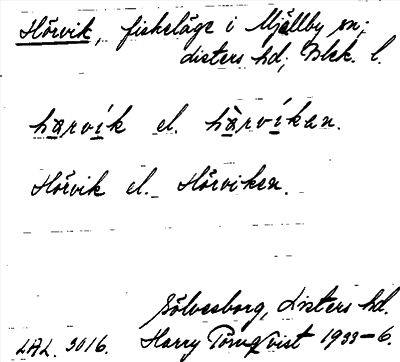 Hörvik, fiskeläge i Mjällby sn;
Listers hd; Blek. l.
hărvík el. hărvíkan.
Hörvik el. Hörviken.
Sölvesborg, Listers hd.
LAL. 3016. Harry Törnqvist 1933-6.